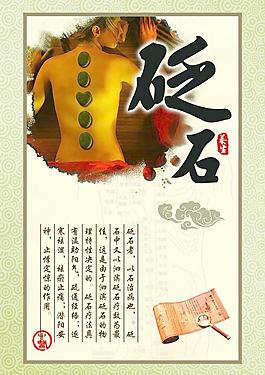 砭石
养生
砭石者，以石治病也。。砭
石中又以泗滨砭石疗效为最
佳，这是由于泗滨砭石的物
理特性决定的。砭石疗法具
有温助阳气，疏通经络；逐
寒祛湿，祛瘀止痛；潜阳安
神，止悸定惊的作用。